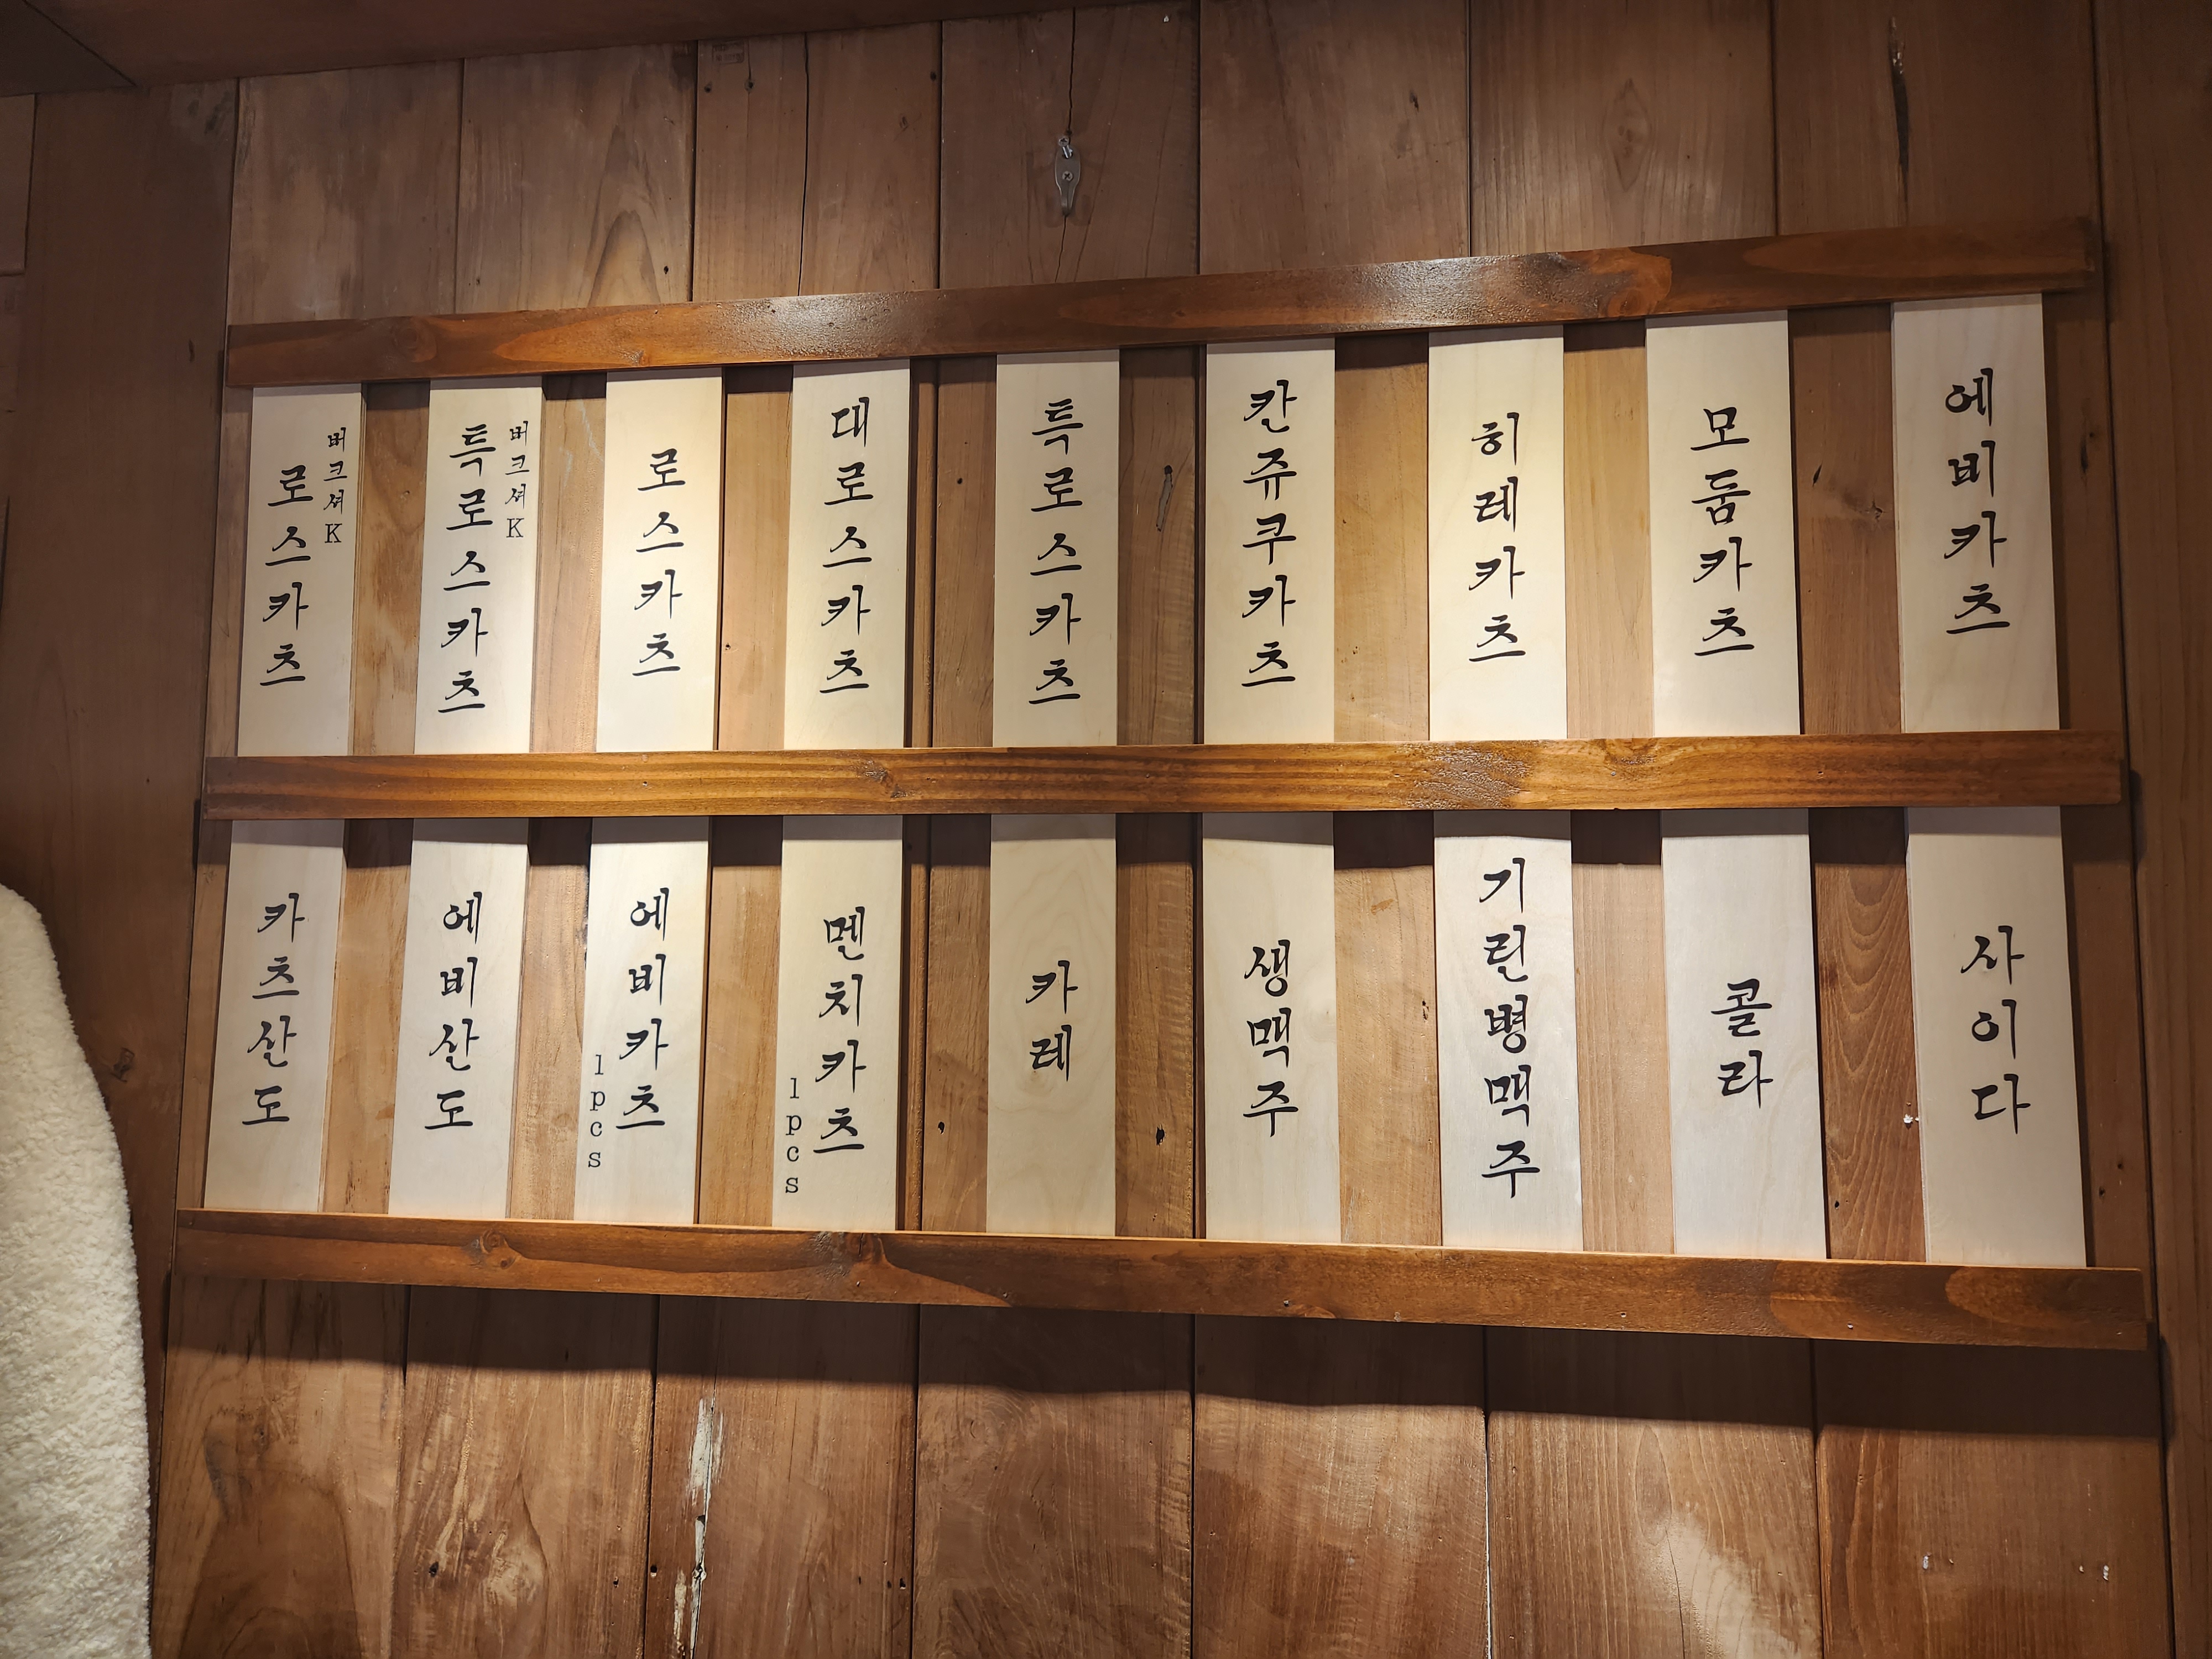 버크셔K
로스카츠
버크셔K
특로스카츠
로스카츠
대로스카츠
특로스카츠
칸쥬쿠카츠
히레카츠
모둠카츠
에비카츠
카츠산도
에비산도
에비카츠
1pcs
멘치카츠
1pcs
카레
생맥주
기린병맥주
콜라
사이다